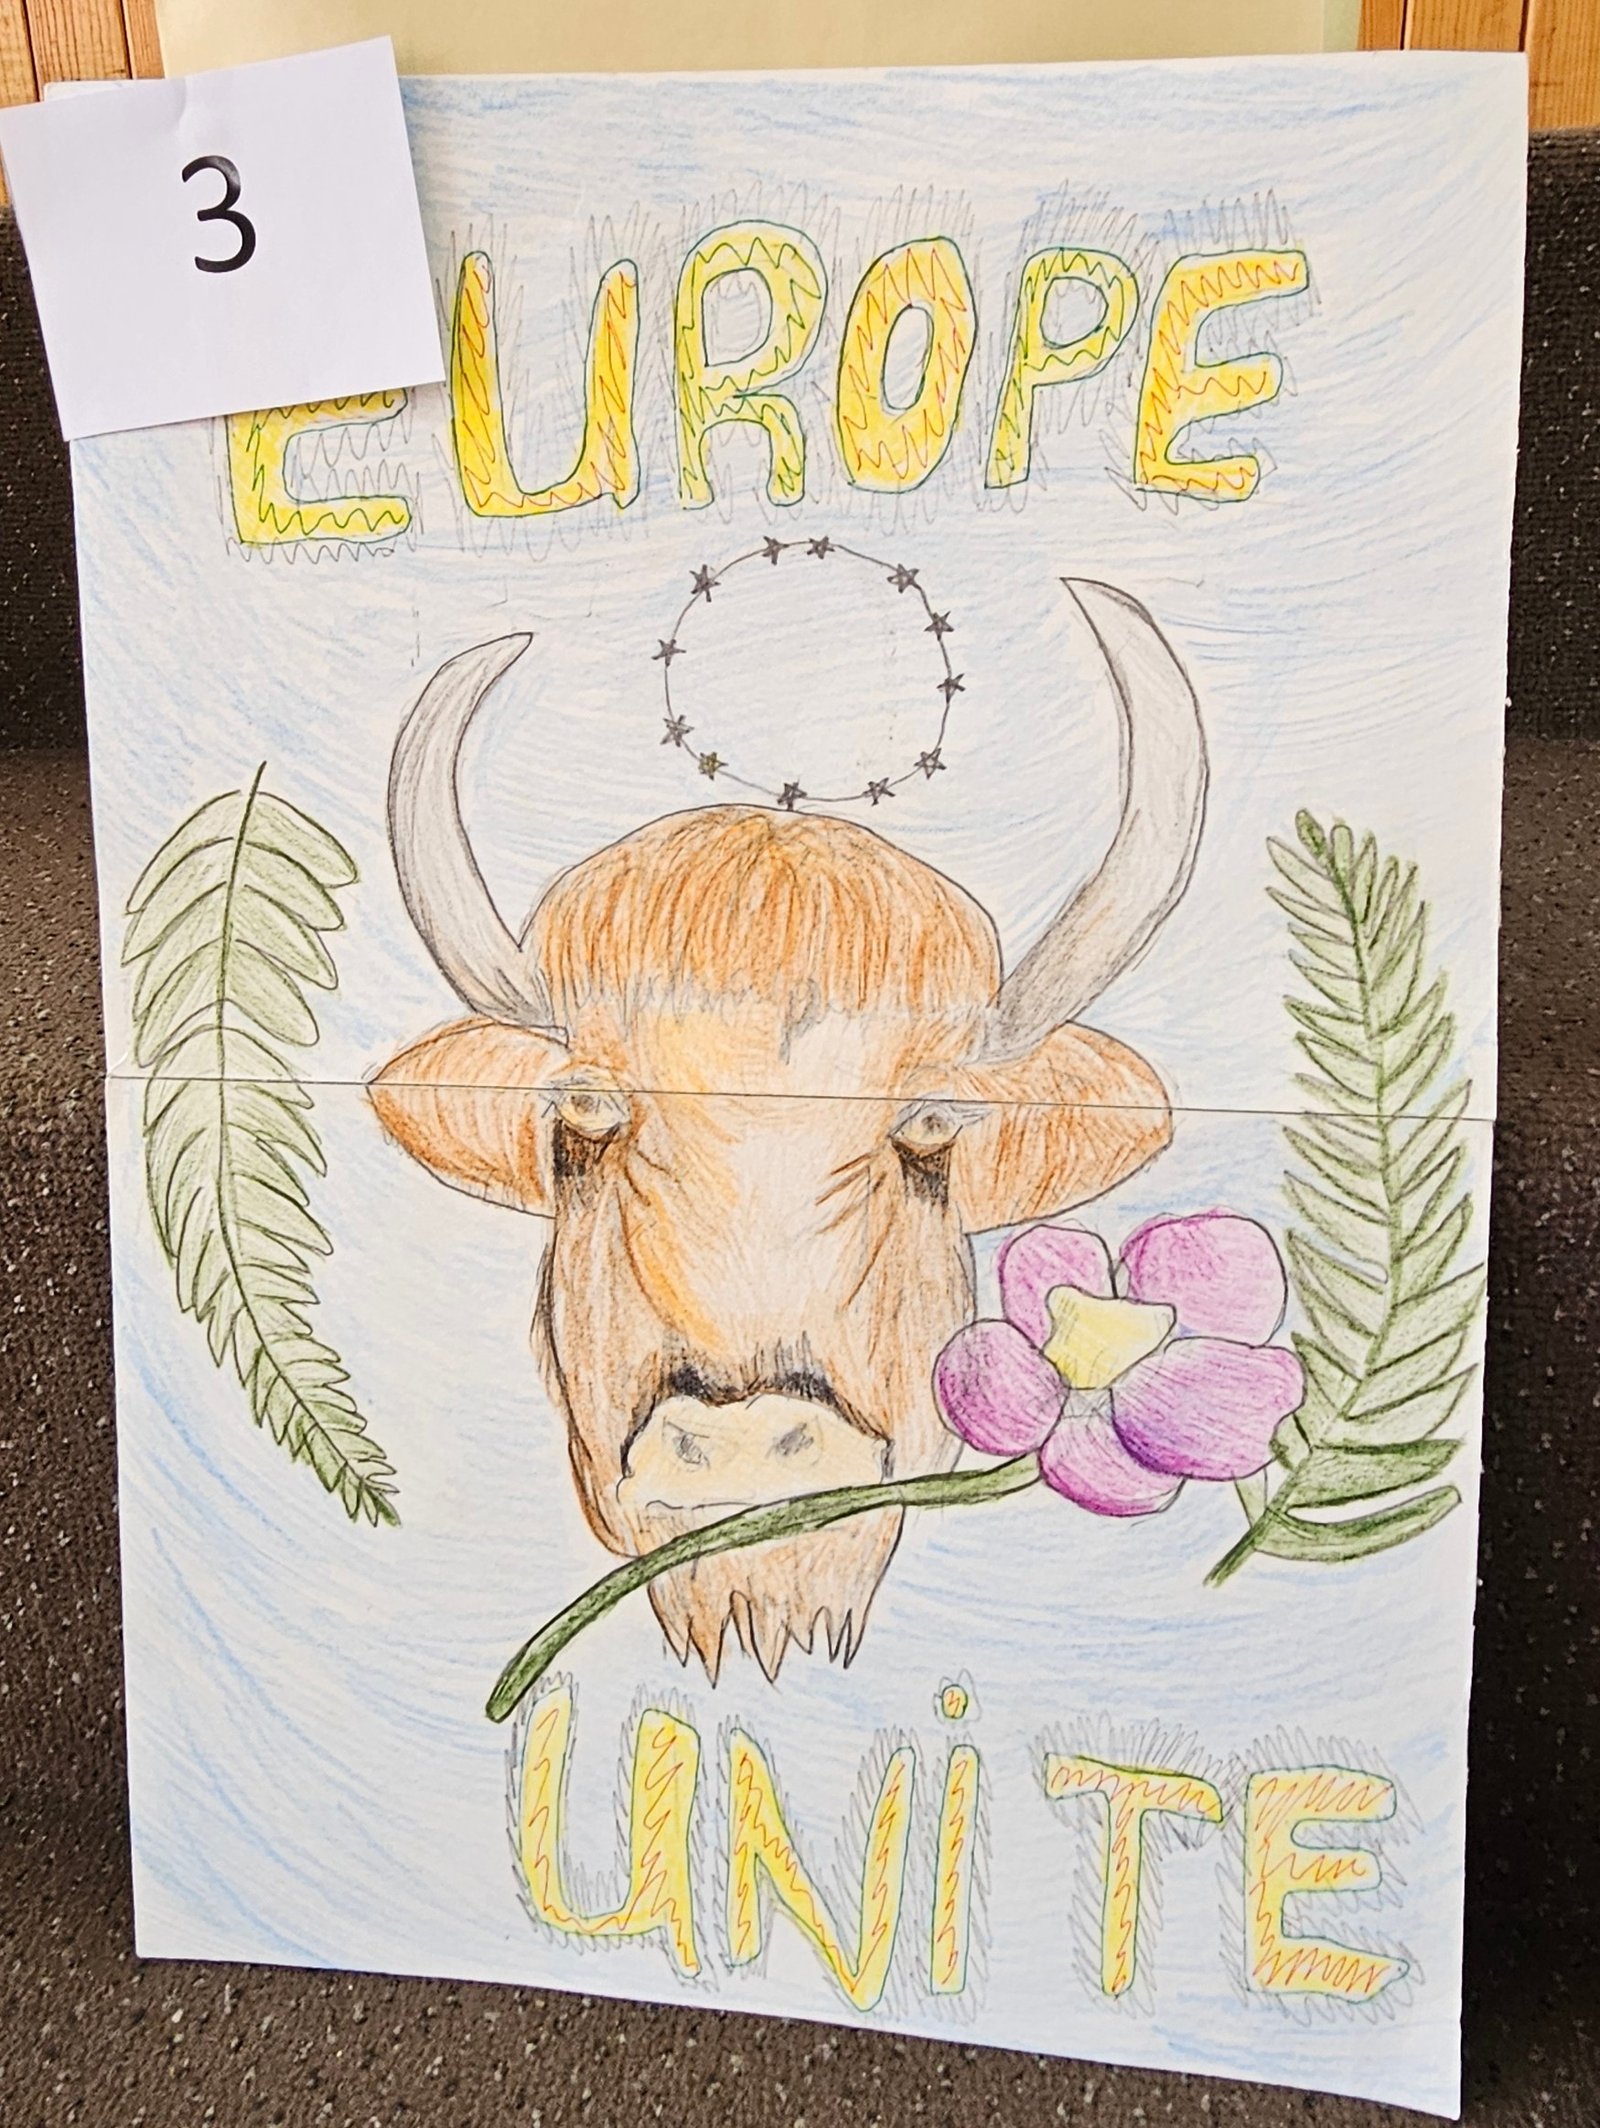 3
EUROPE
UNiTE